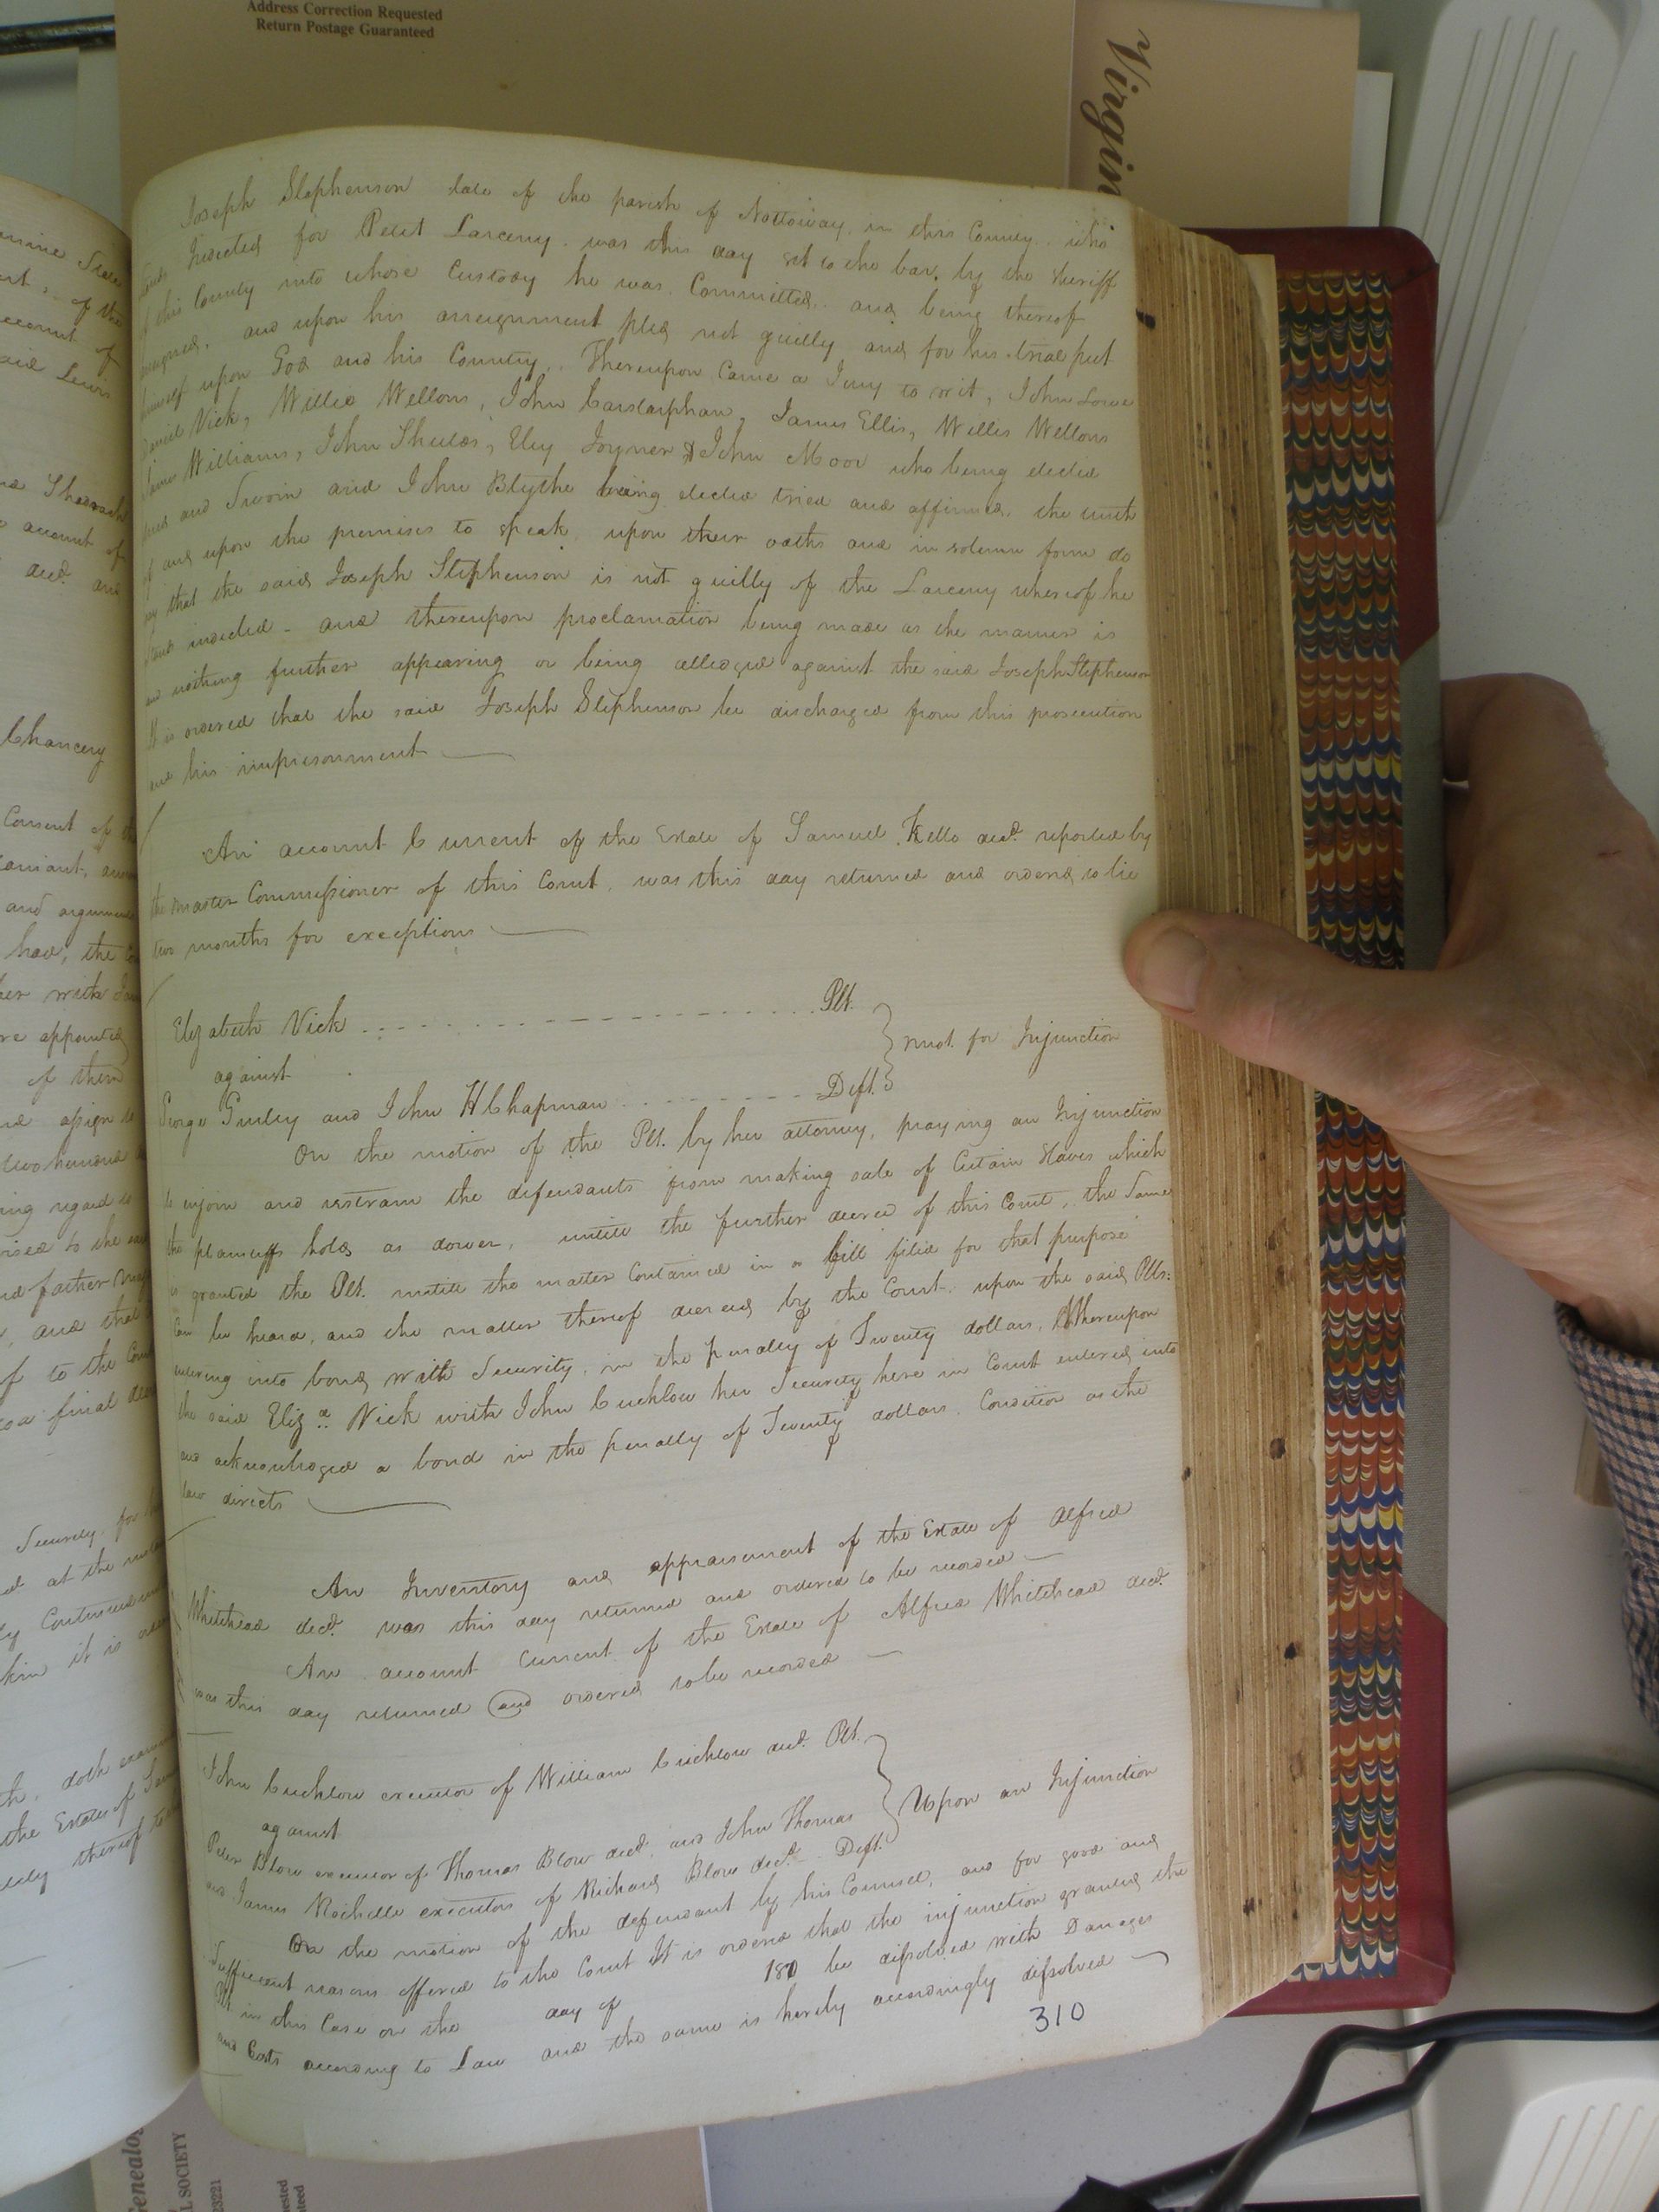 Address Correction Requested
Return Postage Guaranteed
Virgin
Joseph Stephenson late of the parish of Nottoway, in this County. who
Stands Indicted for Petit Larceny. was this day set to the bar. by the Sheriff
of this County into whose Custody he was Committed. and being thereof
arraigned. and upon his arraignment pled not guilty and for his trial put
himself upon God and his Country. Thereupon Came a Jury to wit, John Lowe
Daniel Vick, Willis Wellons, John Carstarphan, James Ellis, Willis Wellons
James Williams, John Shields, Eley Joyner & John Moor who being elected
tried and Sworn and John Blythe being elected tried and affirmed. the truth
of and upon the premises to speak, upon their oaths and in solemn form do
say that the said Joseph Stephenson is not guilty of the Larceny whereof he
stands indicted - and thereupon proclamation being made as the manner is
and nothing further appearing or being alledged against the said Joseph Stephenson
It is ordered that the said Joseph Stephenson be discharged from this prosecution
and his imprisonment
An account Current of the Estate of Samuel Kello decd. reported by
the Master Commissioner of this Court. was this day returned and ordered to lie
two months for exceptions
Elizabeth Vick Plt.
against
mot. for Injunction
George Gurley and John H Chapman Deft.
On the motion of the Plt. by her attorney, praying an Injunction
to injoin and restrain the defendants from making sale of Certain Slaves which
the plaintiff holds as dower, untill the further decree of this Court, the Same
is granted the Plt. untill the matter Contained in a bill filed for that purpose
Can be heard, and the matter thereof decreed by the Court. upon the said Plts.
entering into bond with Security, in the penalty of Twenty dollars, Whereupon
the said Eliza. Vick with John Crichlow her Security here in Court entered into
and acknowledged a bond in the penalty of Twenty dollars. Condition as the
law directs
An Inventory and appraisement of the Estate of Alfred
Whitehead decd. was this day returned and ordered to be recorded
An account Current of the Estate of Alfred Whitehead decd.
was this day returned and ordered to be recorded
John Crichlow executor of William Crichlow decd. Plt.
against
Upon an Injunction
Peter Blow executor of Thomas Blow decd. and John Thomas
and James Rochelle executors of Richard Blow decd. Deft.
On the motion of the defendant by his Counsel, and for good and
Sufficient reasons offered to the Court It is ordered that the injunction granted the
Plt. in this Case on the day of 18 be dissolved with Damages
and Costs according to Law and the same is hereby accordingly dissolved
310
L SOCIETY
23221